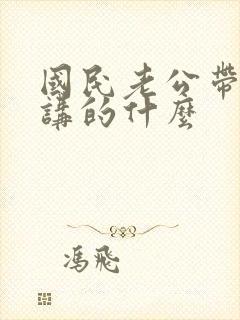 國民老公帶
講的什麼
馮飛